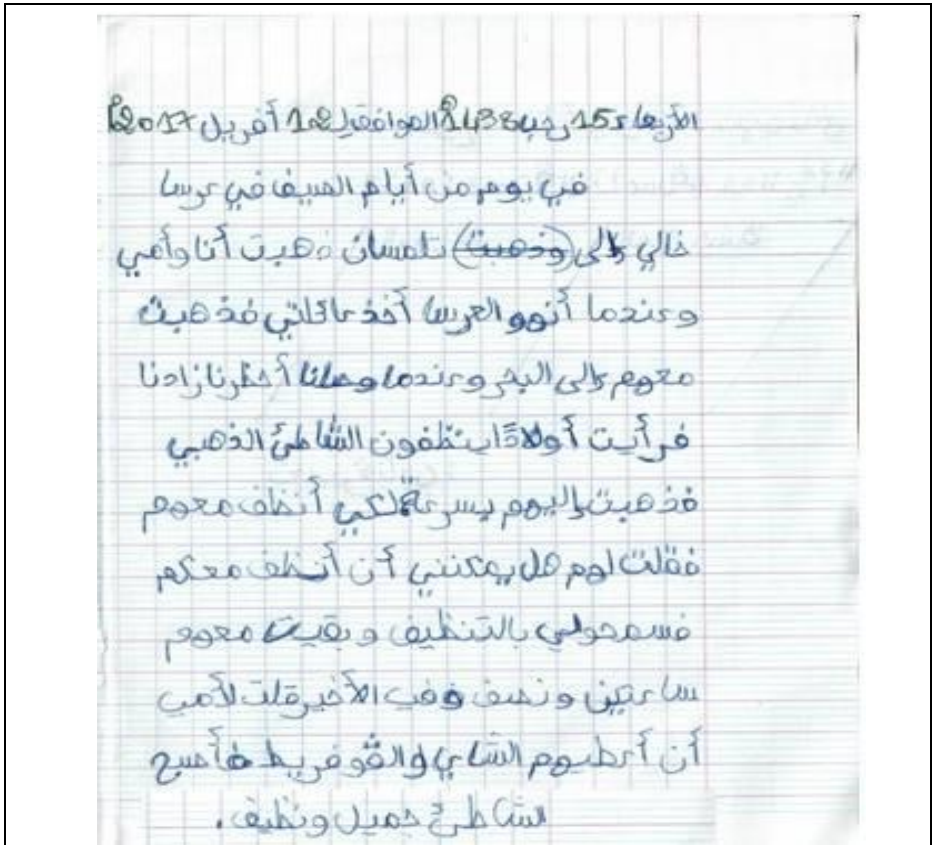 الأربعاء 15 رجب 1438ه الموافق لـ 12 أفريل 2017م
في يوم من أيام الصيف في عرس
خالي إلى (وذهبت) تلمسان ذهبت أنا وأمي
وعندما أنهو العرس أخذ عائلتي فذهبت
معهم إلى البحر وعندما وصلنا أحظرنا زادنا
فرأيت أولادًا ينظفون الشاطئ الذهبي
فذهبت إليهم بسرعة لكي أنظف معهم
فقلت لهم هل يمكنني أن أنظف معكم
فسمحولي بالتنظيف وبقيت معهم
ساعتين ونصف وفي الأخير قلت لأمي
أن أعطيهم الشاي والقوفريط فأصبح
الشاطئ جميل ونظيف.